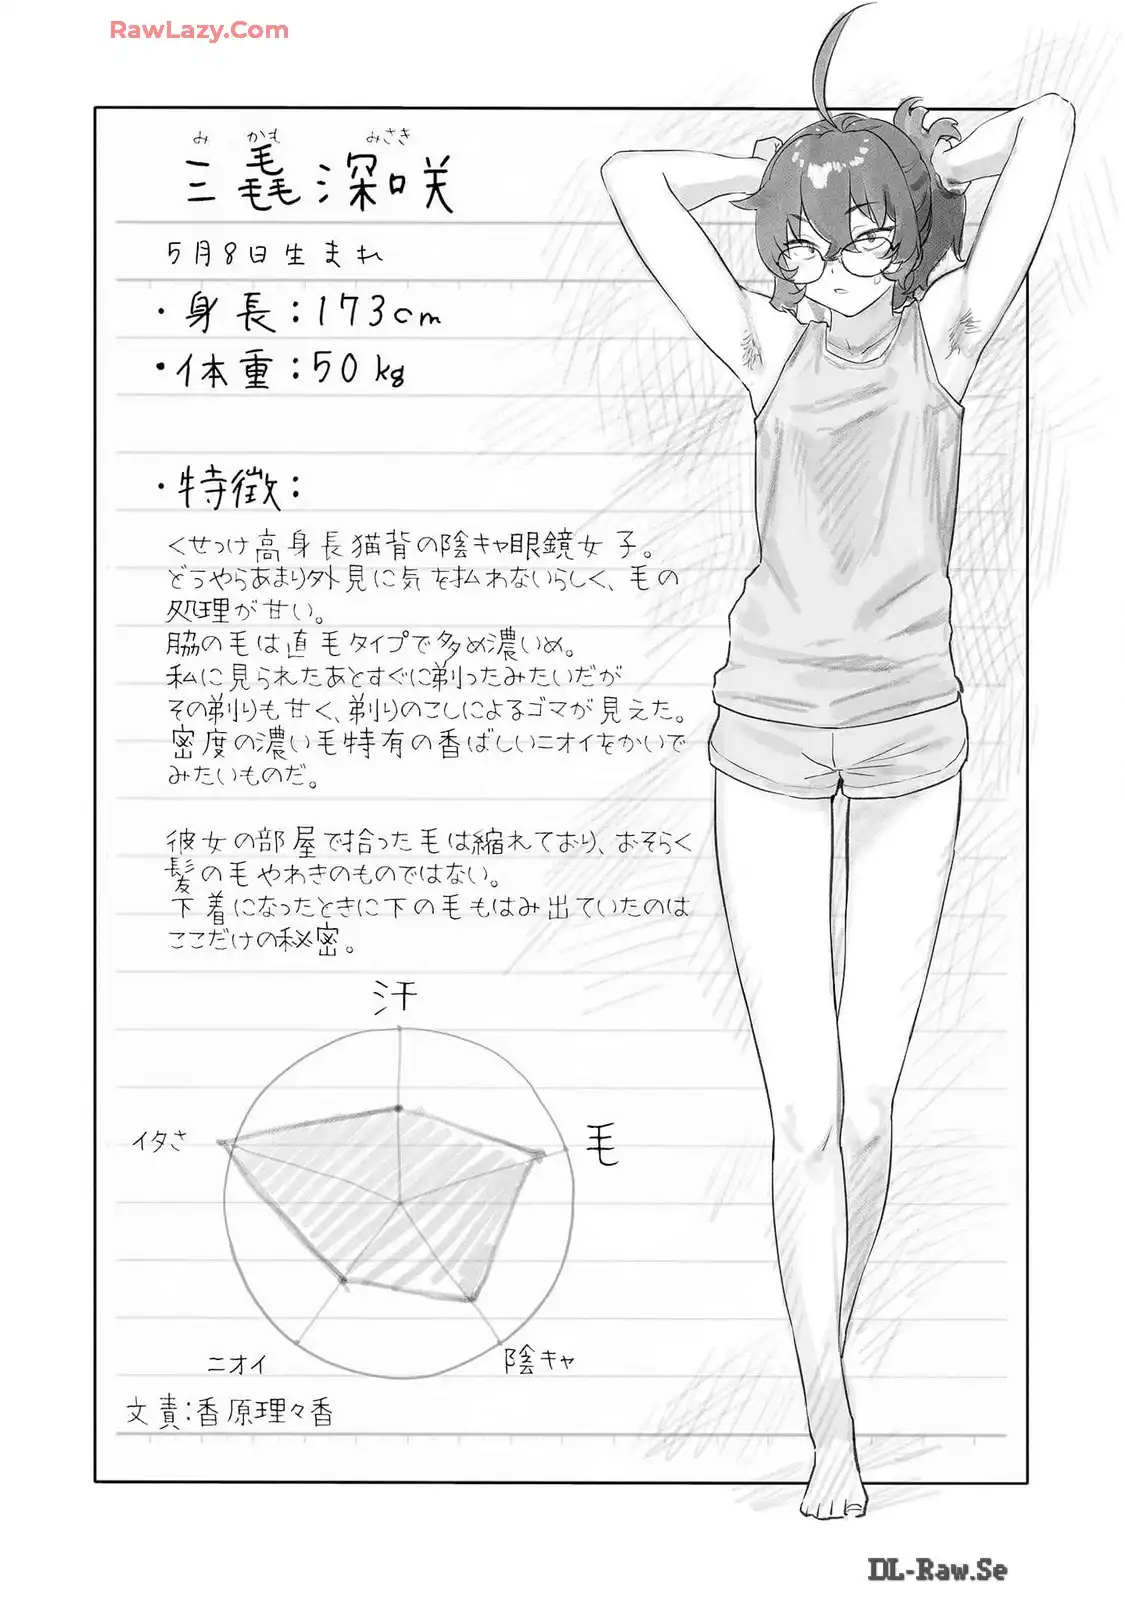 RawLazy.Com
み かも みさき
三毳深咲
5月8日生まれ
・身長：173cm
・体重：50kg
・特徴：
くせっけ高身長猫背の陰キャ眼鏡女子。
どうやらあまり外見に気を払わないらしく、毛の
処理が甘い。
脇の毛は直毛タイプで多め濃いめ。
私に見られたあとすぐに剃ったみたいだが
その剃りも甘く、剃りのこしによるゴマが見えた。
密度の濃い毛特有の香ばしいニオイをかいで
みたいものだ。
彼女の部屋で拾った毛は縮れており、おそらく
髪の毛やわきのものではない。
下着になったときに下の毛もはみ出ていたのは
ここだけの秘密。
汗
イタさ
毛
ニオイ
陰キャ
文責：香原理々香
DL-Raw.Se